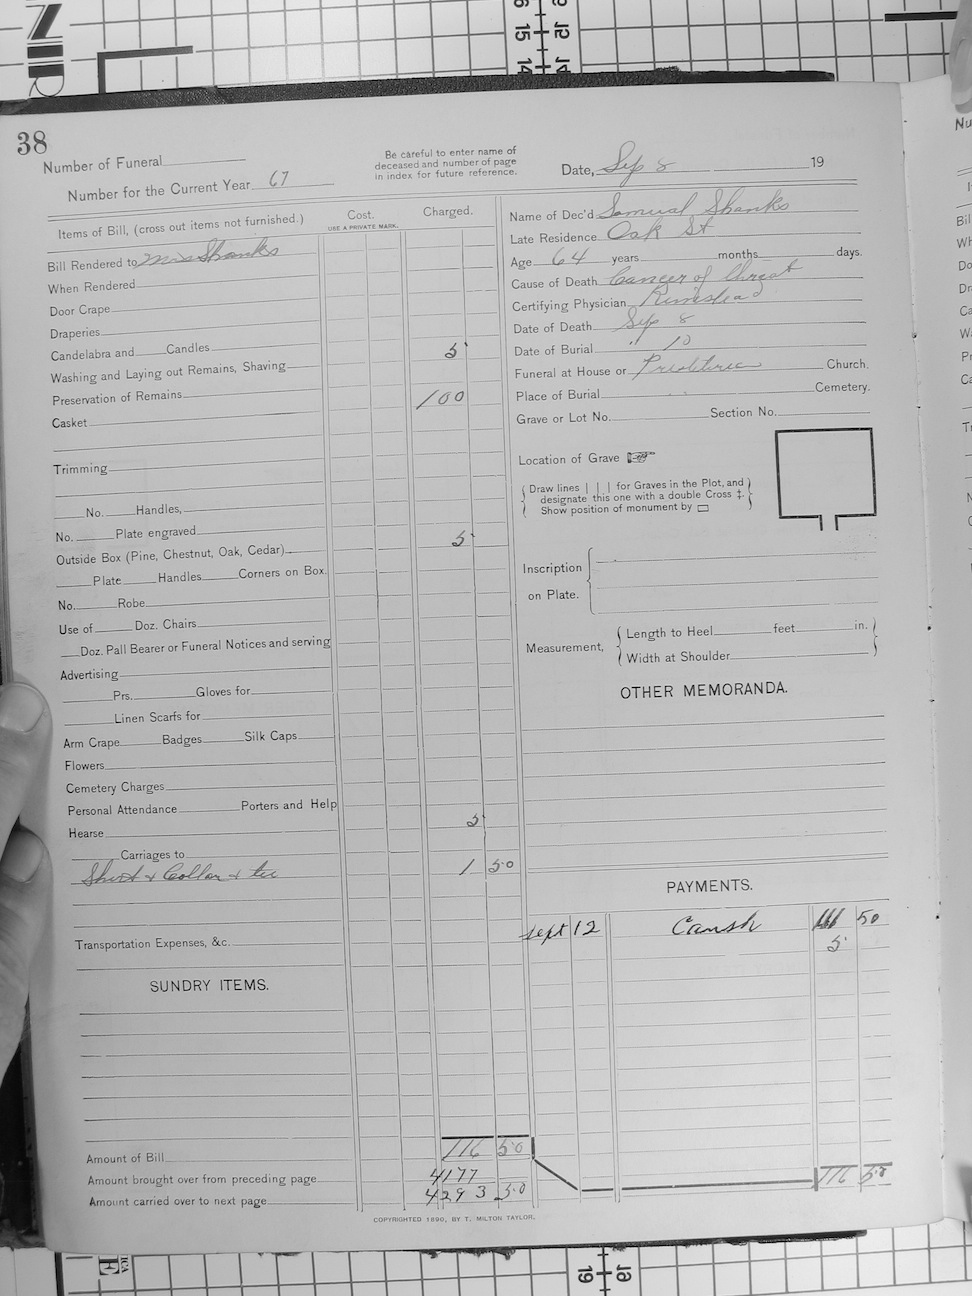 38
Number of Funeral
Number for the Current Year 67
Be careful to enter name of
deceased and number of page
in index for future reference.
Date, Sep 8 19
Items of Bill, (cross out items not furnished.)
Cost.
USE A PRIVATE MARK.
Charged.
Bill Rendered to Mrs Shanks
When Rendered
Door Crape
Draperies
Candelabra and Candles
Washing and Laying out Remains, Shaving 5
Preservation of Remains
Casket 100
Trimming
No. Handles,
No. Plate engraved
Outside Box (Pine, Chestnut, Oak, Cedar) 5
Plate Handles Corners on Box.
No. Robe
Use of Doz. Chairs
Doz. Pall Bearer or Funeral Notices and serving
Advertising
Prs. Gloves for
Linen Scarfs for
Arm Crape Badges Silk Caps
Flowers
Cemetery Charges
Personal Attendance Porters and Help
Hearse 5
Carriages to
Shirt & Collar & tie 1 50
Transportation Expenses, &c.
SUNDRY ITEMS.
Amount of Bill 116 50
Amount brought over from preceding page 4177
Amount carried over to next page 4293 50
Name of Dec'd Samual Shanks
Late Residence Oak St
Age 64 years months days.
Cause of Death Cancer of throat
Certifying Physician
Date of Death Sep 8
Date of Burial " 10
Funeral at House or Church.
Place of Burial Cemetery.
Grave or Lot No. Section No.
Location of Grave
Draw lines | | | for Graves in the Plot, and
designate this one with a double Cross ‡.
Show position of monument by
Inscription
on Plate.
Measurement,
Length to Heel feet in.
Width at Shoulder
OTHER MEMORANDA.
PAYMENTS.
Sept 12 Cansh 111 50
5
116 50
COPYRIGHTED 1890, BY T. MILTON TAYLOR.